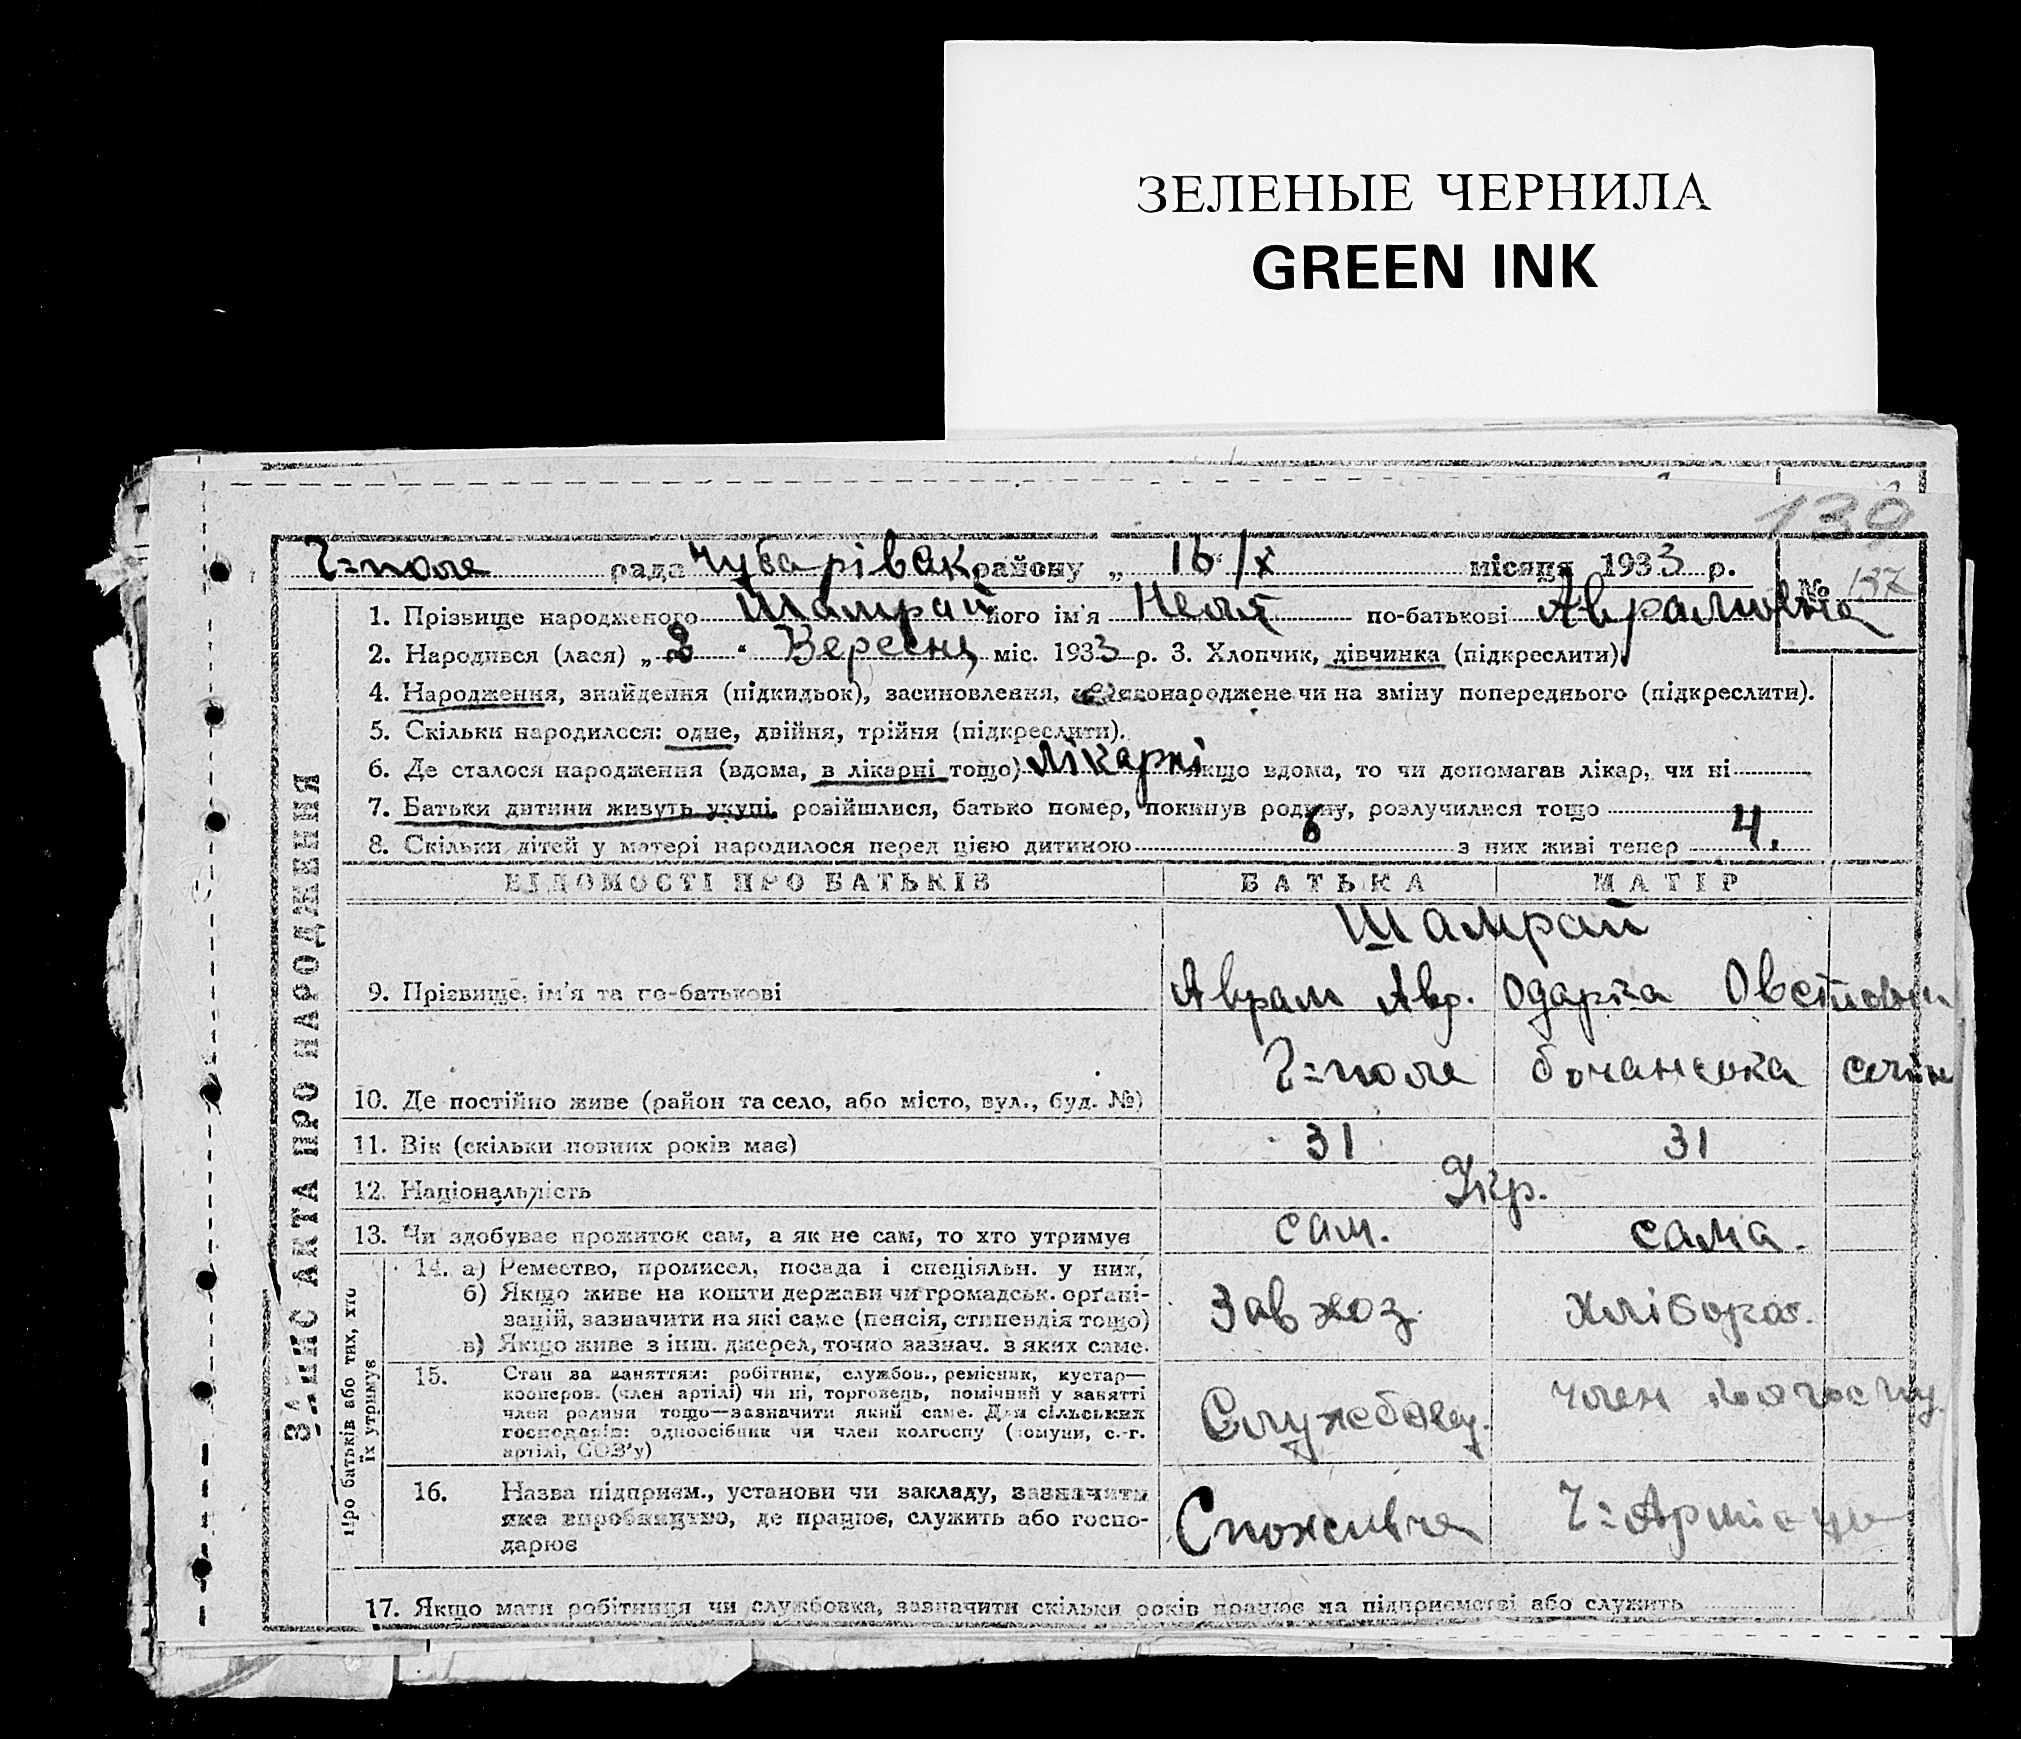 ЗЕЛЕНЫЕ ЧЕРНИЛА
GREEN INK
130
Г=поле рада Чубарівак району „ 16/X місяця 1933 р.
№ 137
1. Прізвище народженого Шамрай його ім'я Неля по-батькові Аврамовна
2. Народився (лася) „ 2 " Вересня міс. 1933 р. 3. Хлопчик, дівчинка (підкреслити)
4. Народження, знайдення (підкидьок), засиновлення, чи на зміну попереднього (підкреслити).
5. Скільки народилося: одне, двійня, трійня (підкреслити).
6. Де сталося народження (вдома, в лікарні тощо) лікарні якщо вдома, то чи допомагав лікар, чи ні
7. Батьки дитини живуть укупі, розійшлися, батько помер, покинув родину, розлучилися тощо
8. Скільки дітей у матері народилося перед цією дитиною 6 з них живі тепер 4.
ЗАПИС АКТА ПРО НАРОДЖЕННЯ
ВІДОМОСТІ ПРО БАТЬКІВ БАТЬКА МАТІР
Шамрай
9. Прізвище, ім'я та по-батькові Аврам Авр. Одарка
Г=поле
10. Де постійно живе (район та село, або місто, вул., буд. №)
11. Вік (скільки повних років має) 31 31
12. Національність Укр.
13. Чи здобуває прожиток сам, а як не сам, то хто утримує сам. сама.
Про батьків або тих, хто
їх утримує
14. а) Ремество, промисел, посада і спеціяльн. у них,
б) Якщо живе на кошти держави чи громадськ. орґані-
зацій, зазначити на які саме (пенсія, стипендія тощо)
в) Якщо живе з інш. джерел, точно зазнач. з яких саме.
Завхоз. хлібороб.
15. Стан за заняттям: робітник, службов., ремісник, кустар—
кооперов. (член артілі) чи ні, торговець, помічний у занятті
член родини тощо—зазначити який саме. Для сільських
господарів: одноосібник чи член колгоспу (комуни, с.-г.
артілі, СОЗ'у)
Службовец. член колгоспу.
16. Назва підприєм., установи чи закладу, зазначити
яке виробництво, де працює, служить або госпо-
дарює
Споживча
17. Якщо мати робітниця чи службовка, зазначити скільки років працює на підприємстві або служить